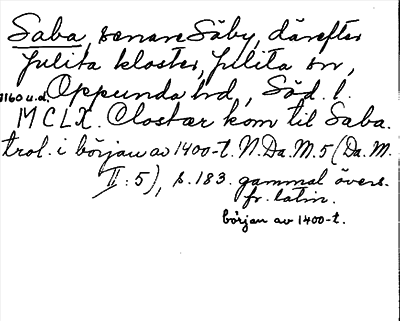 Saba, senare Säby, därefter
Julita kloster, Julita sn,
1160 u.d. Oppunda hd, Söd. l.
MCLX. Clostær kom til Saba.
trol. i början av 1400-t. N.Da.M.5 (Da.M.
II:5), s.183. gammal övers.
fr. latin.
början av 1400-t.